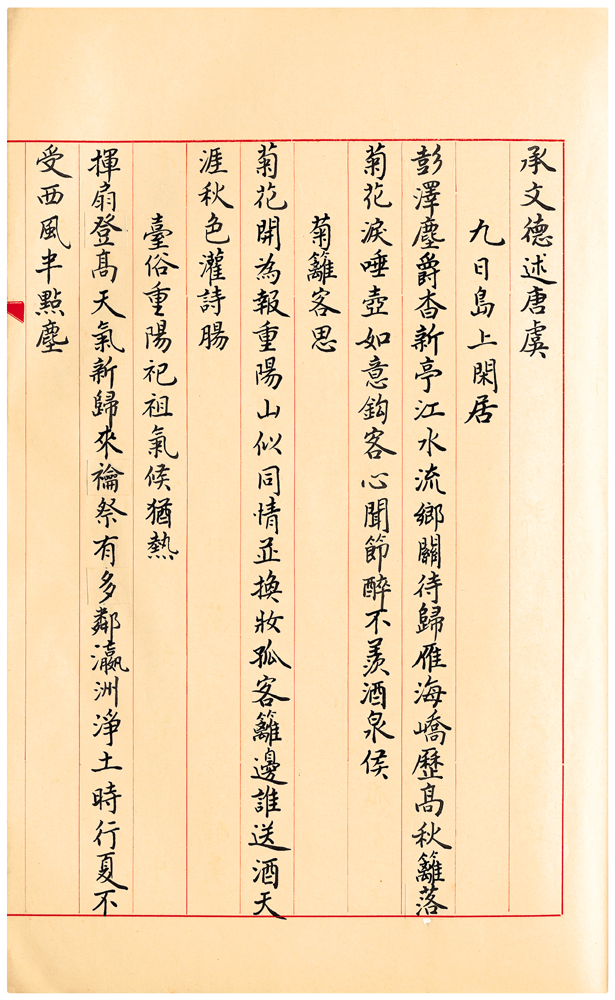 承文德述唐虞
九日島上閑居
彭澤塵爵杳新亭江水流鄉關待歸雁海嶠歷高秋籬落
菊花淚唾壺如意鈎客心聞節醉不羨酒泉侯
菊籬客思
菊花開為報重陽山似同情並換妝孤客籬邊誰送酒天
涯秋色灌詩腸
臺俗重陽祀祖氣候猶熱
揮扇登高天氣新歸來禴祭有多鄰瀛洲淨土時行夏不
受西風半點塵